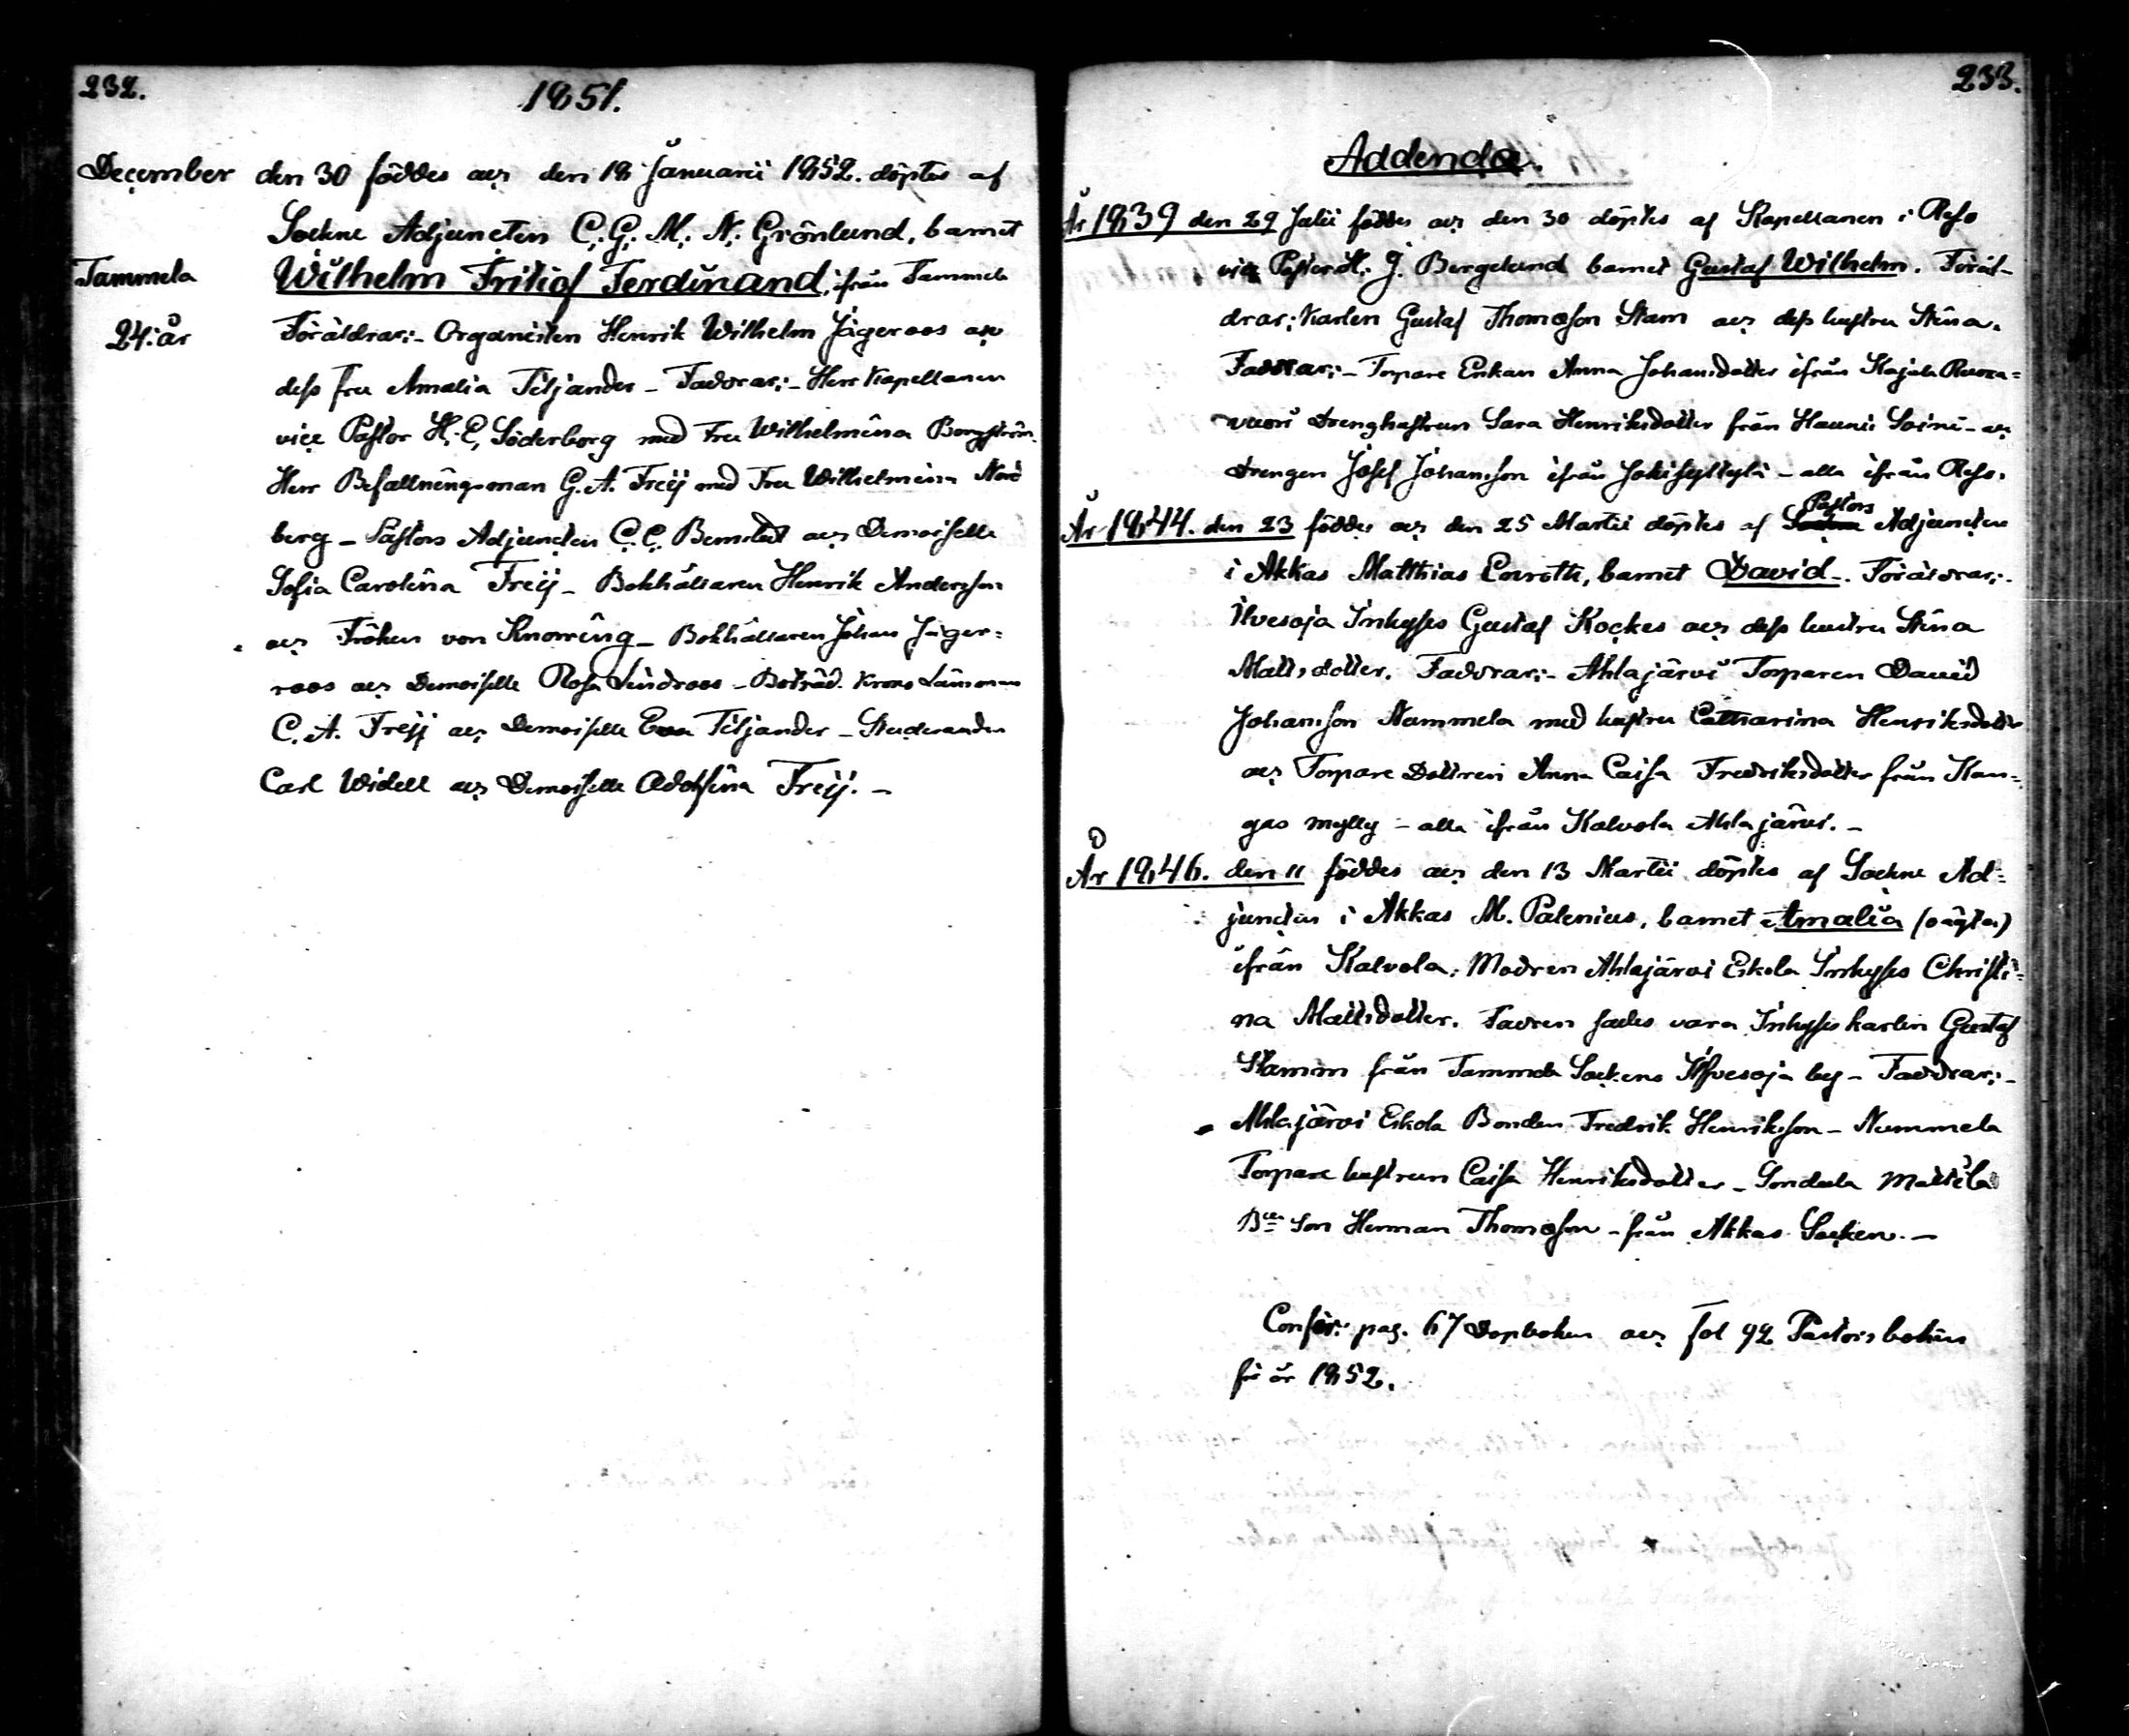 232.
1851.
December den 30 föddes och den 18 Januarii 1852. döptes af
Sockne Adjuncten C. G. M. N. Grönlund, barnet
Tammela Wilhelm Fritiof Ferdinand, ifrån Tammela
24. år Föräldrar:- Organisten Henrik Wilhelm Jägeroos och
dess fru Amalia Tiljander - Faddrar:- Herr Kapellanen
vice Pastor H. E. Söderborg med Fru Wilhelmina Borgström
Herr Befallningsman G. A. Freij med Fru Wilhelmina Nord
berg - Pastors Adjuncten C. C. och Demoiselle
Sofia Carolina Freij - Bokhållaren Henrik Andersson
och Fröken von Knorring - Bokhållaren Johan Jäger=
roos och Demoiselle Rosa Lindroos - Krono Länsman
C. A. Freij och Demoiselle Eva Tiljander - Studeranden
Carl Widell och Demoiselle Adolfina Freij. -
233.
Addenda.
År 1839 den 29 Julii föddes och den 30 döptes af Kapellanen i
vice Pastor H. J. Bergelund barnet Gustaf Wilhelm. Föräl-
drar: Karlen Gustaf Thomasson Stam och dess hustru Stina.
Faddrar:- Torpare Enkan Anna Johansdotter ifrån Kajala
vuori drenghustrun Sara Henriksdotter från Soini - och
drengen Josef Johansson ifrån - alla ifrån
År 1844. den 23 föddes och den 25 Martii döptes af Pastors Adjuncten
i Akkas Matthias barnet David. Föräldrar:-
Ilvesoja Inhyses Gustaf Kockes och dess hustru Stina
Mattsdotter. Faddrar:- Ahlajärvi Torparen David
Johansson Nummela med hustru Catharina Henriksdotter
och Torpare Dottren Anna Caisa Fredriksdotter från Kan=
gas mylly - alla ifrån Kalvola Ahlajärvi. -
År 1846. den 11 föddes och den 13 Martii döptes af Sockne Ad=
juncten i Akkas M. Palenius, barnet Amalia (oägta)
ifrån Kalvola: Modren Ahlajärvi Eskola Inhyses Christi=
na Mattsdotter. Fadren sades vara Inhyses karlen Gustaf
Stamm från Tammela Sockens Ilvesoja by - Faddrar:-
Ahlajärvi Eskola Bonden Fredrik Henriksson - Nummela
Torpare hustrun Caisa Henriksdotter - Mattila
Bde Son Herman Thomasson - från Akkas Socken. -
Confer: pag. 67 Dopboken och fol 92
för år 1852.